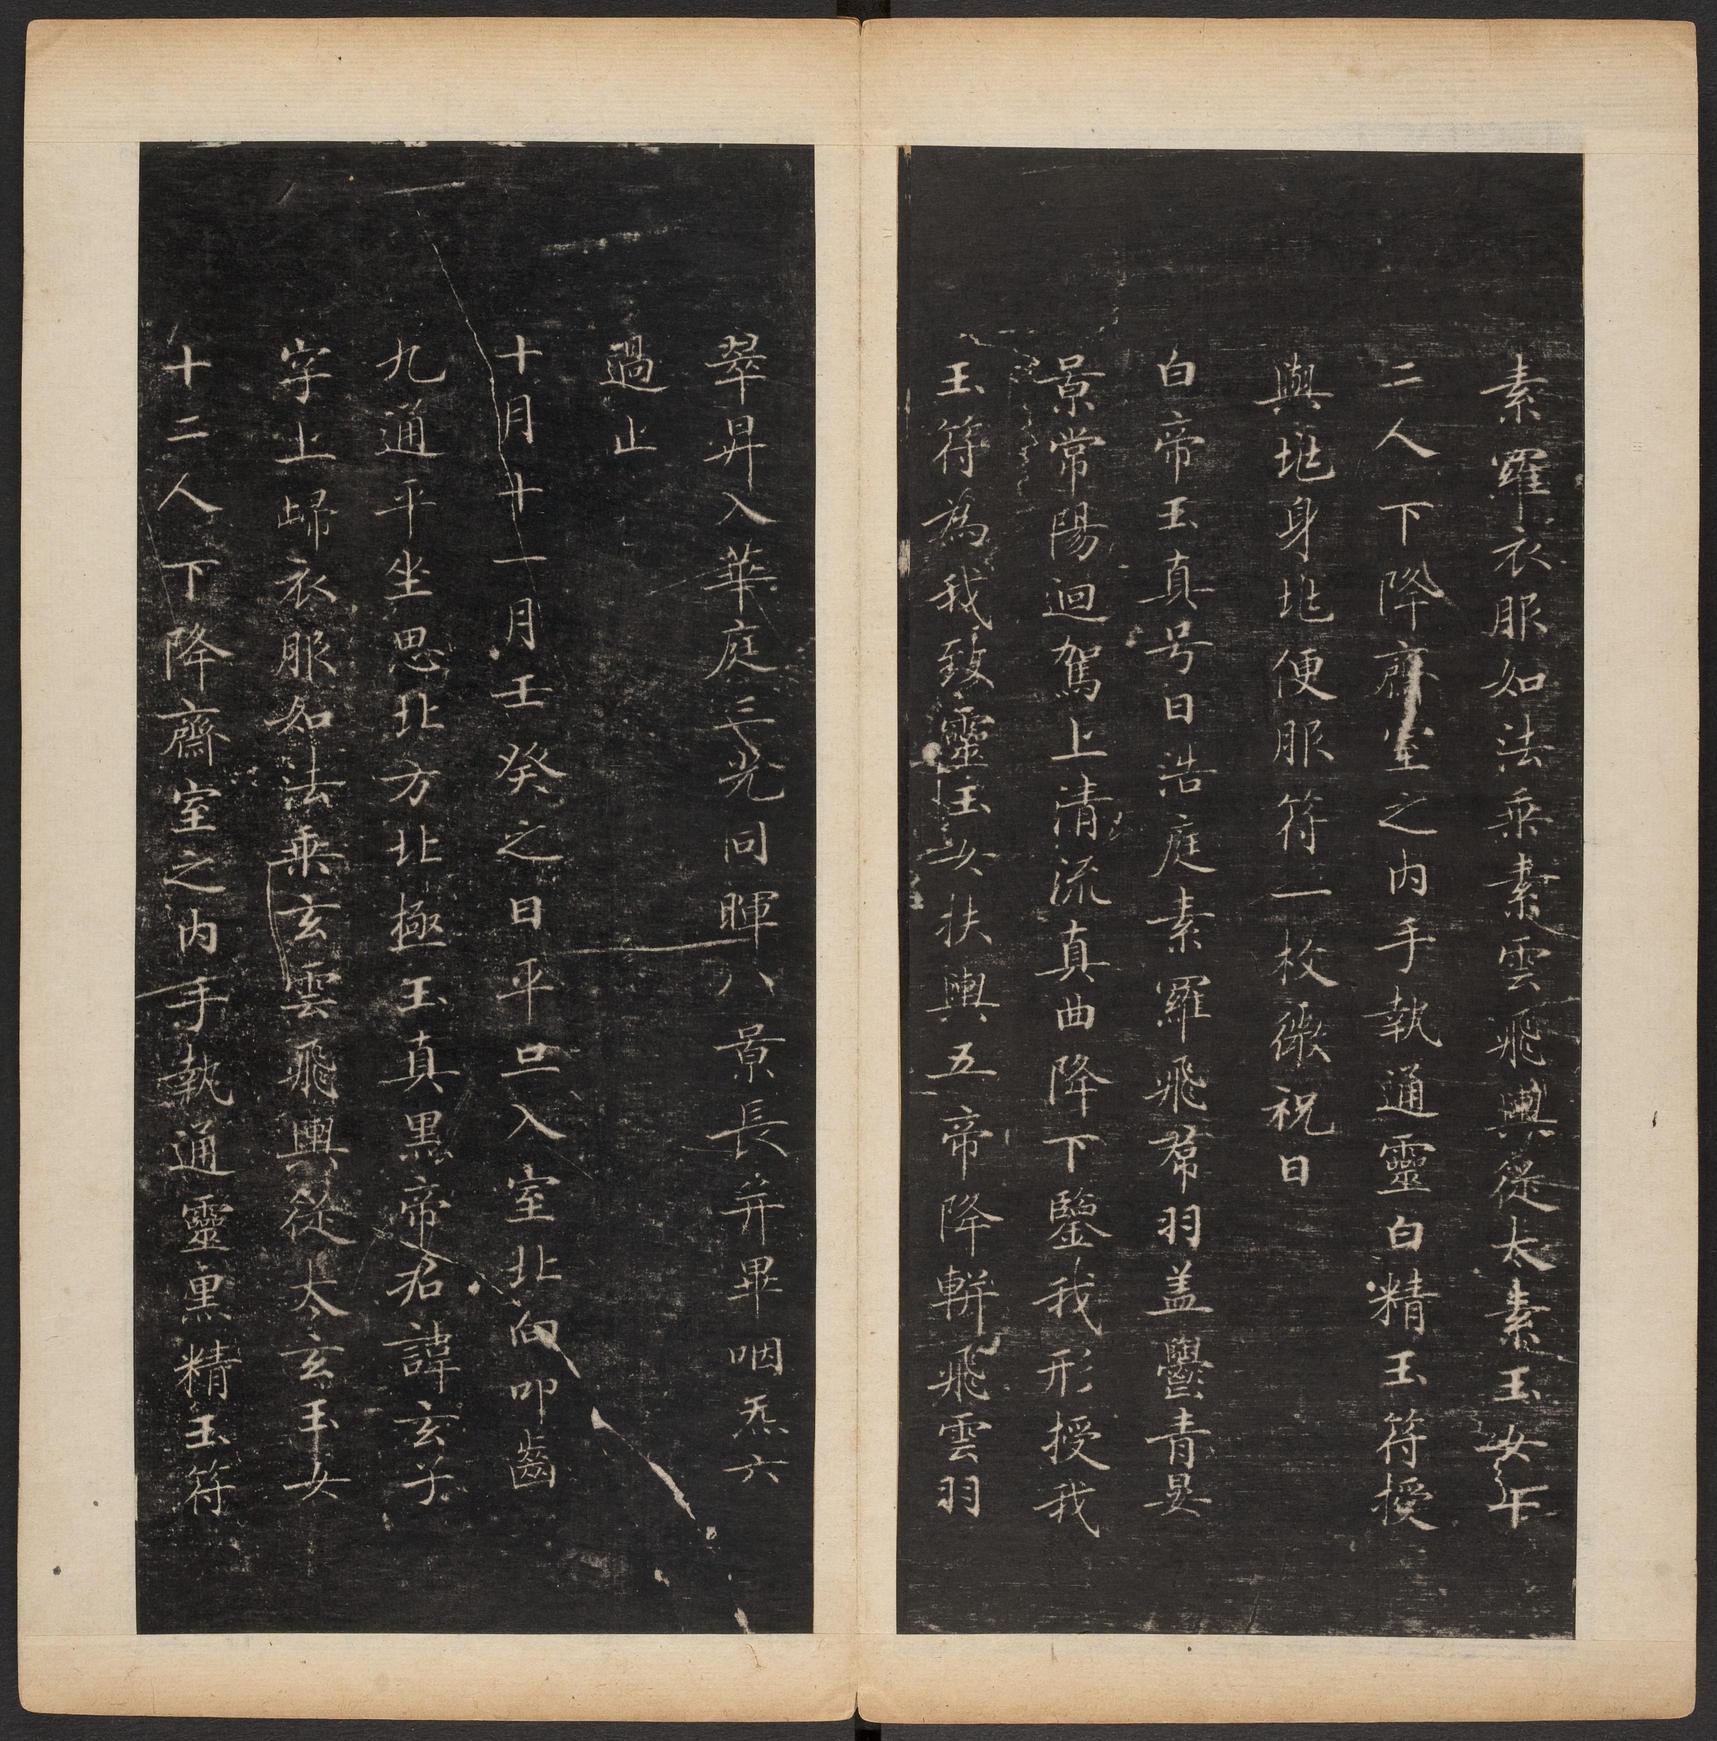 素羅衣服如法乘素雲飛輿從太素玉女十
二人下降齋室之内手執通靈白精玉符授
與兆身兆便服符一枚微祝曰
白帝玉真号曰浩庭素羅飛帬羽盖欝青晏
景常陽迴駕上清流真曲降下鑒我形授我
玉符為我致靈玉女扶輿五帝降軿飛雲羽
翠昇入華庭三光同暉八景長并畢咽炁六
過止
十月十一月壬癸之日平旦入室北向叩齒
九通平坐思北方北極玉真黑帝君諱玄子
字上歸衣服如法乘玄雲飛輿從太玄玉女
十二人下降齋室之内手執通靈黑精玉符